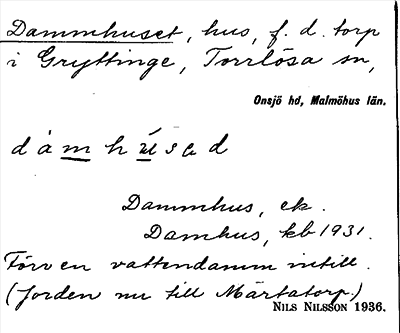 Dammhuset, hus, f. d. torp
i Gryttinge, Torrlösa sn,
Onsjö hd, Malmöhus län.
dåmhúsəd
Dammhus, ek.
Damhus, kb 1931.
Förr en vattendamm intill.
(Jorden nu till Märtatorp.)
NILS NILSSON 1936.